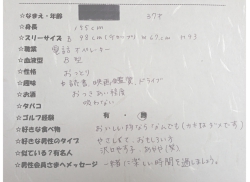 ☆なまえ・年齢 37才
☆身長 155cm
☆スリーサイズ B 93cm (Gカップ) W 67cm H 93
☆職業 電話オペレーター
☆血液型 B型
☆性格 おっとり
☆趣味 読書、映画鑑賞、ドライブ
☆お酒 おつきあい程度
☆タバコ 吸わない
☆ゴルフ経験 有・無
☆好きな食べ物 おいしい物なら なんでも
☆好きな男性のタイプ やさしくて、おもしろい方
☆似ている?有名人
☆男性会員さまへメッセージ 一緒に楽しい時間を過しましょう。